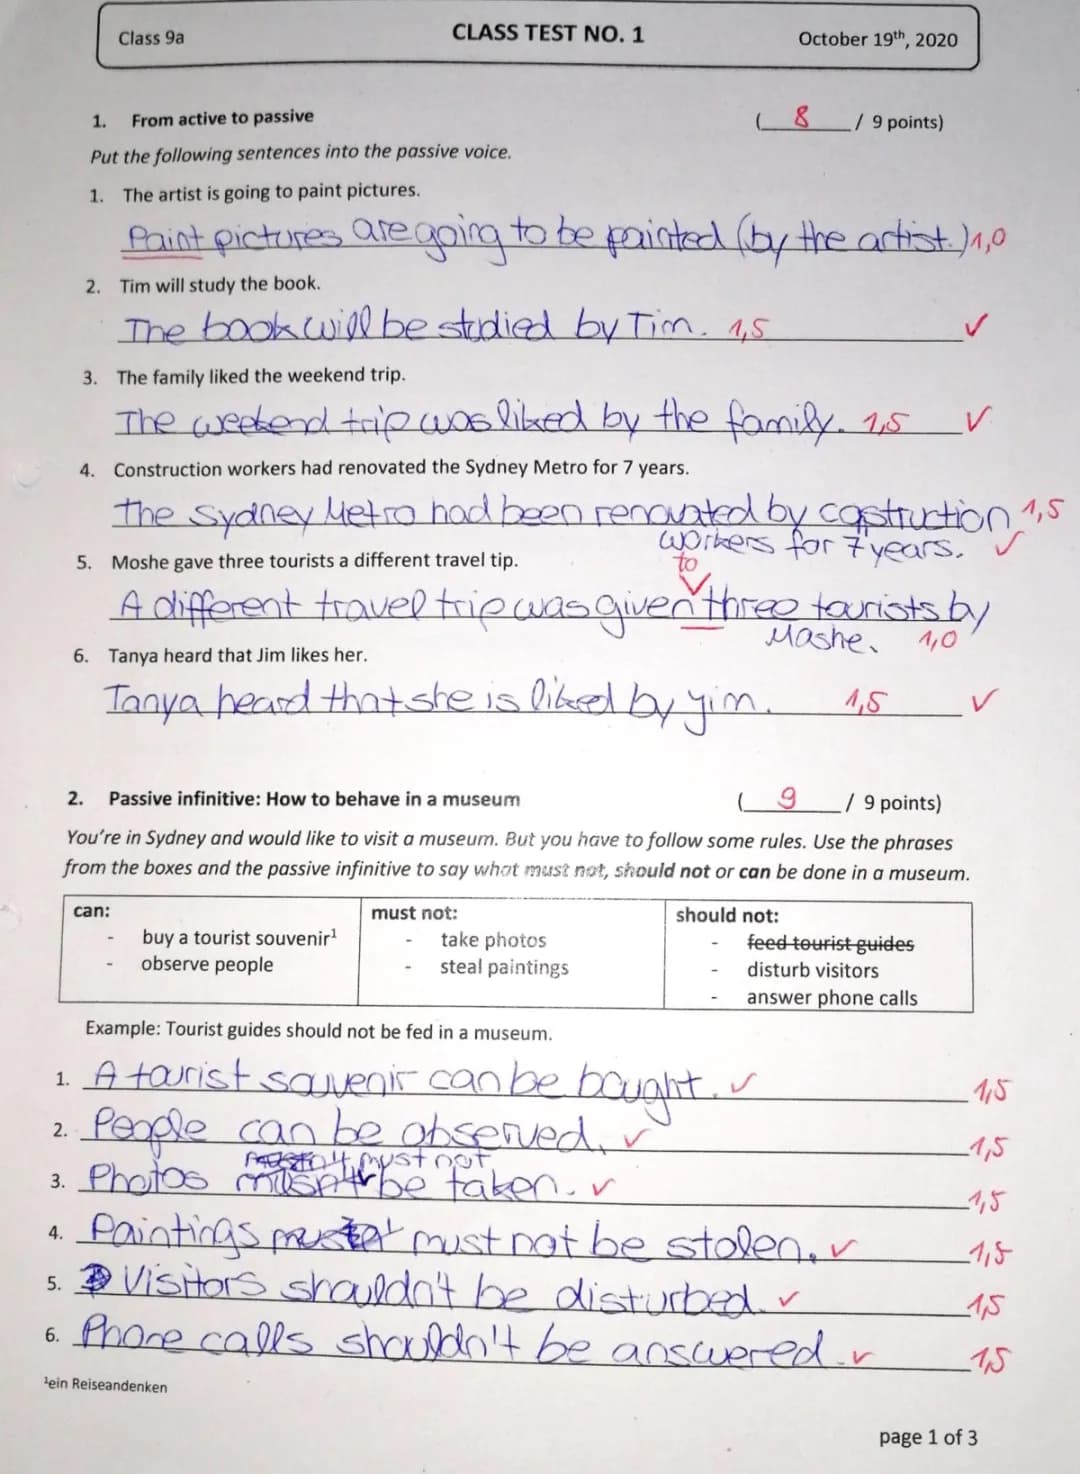 Class 9a
CLASS TEST NO. 1
October 19th, 2020
1. From active to passive
( 8 / 9 points)
Put the following sentences into the passive voice.
1. The artist is going to paint pictures.
Paint pictures are going to be painted (by the artist.) 1,0
2. Tim will study the book.
The book will be studied by Tim. 1,5 ✓
3. The family liked the weekend trip.
The weekend trip was liked by the family. 1,5 ✓
4. Construction workers had renovated the Sydney Metro for 7 years.
The Sydney Metro had been renovated by costruction 1,5
workers for 7 years. ✓
5. Moshe gave three tourists a different travel tip.
to
A different travel trip was given three tourists by
Moshe. 1,0
6. Tanya heard that Jim likes her.
Tanya heard that she is liked by yim. 1,5 ✓
2. Passive infinitive: How to behave in a museum
( 9 / 9 points)
You're in Sydney and would like to visit a museum. But you have to follow some rules. Use the phrases
from the boxes and the passive infinitive to say what must not, should not or can be done in a museum.
can:
- buy a tourist souvenir¹
- observe people
must not:
- take photos
- steal paintings
should not:
- feed tourist guides
- disturb visitors
- answer phone calls
Example: Tourist guides should not be fed in a museum.
1. A tourist souvenir can be bought. ✓ 1,5
2. People can be observed. ✓ 1,5
must not
3. Photos be taken. ✓ 1,5
4. Paintings must not be stolen. ✓ 1,5
5. Visitors shouldn't be disturbed. ✓ 1,5
6. Phone calls shouldn't be answered. ✓ 1,5
¹ein Reiseandenken
page 1 of 3